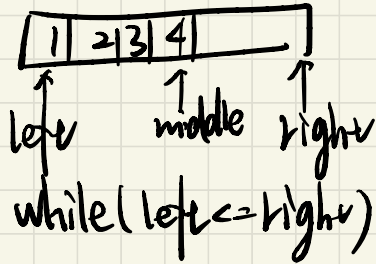 1 2 3 4
left middle right
while(left<=right)